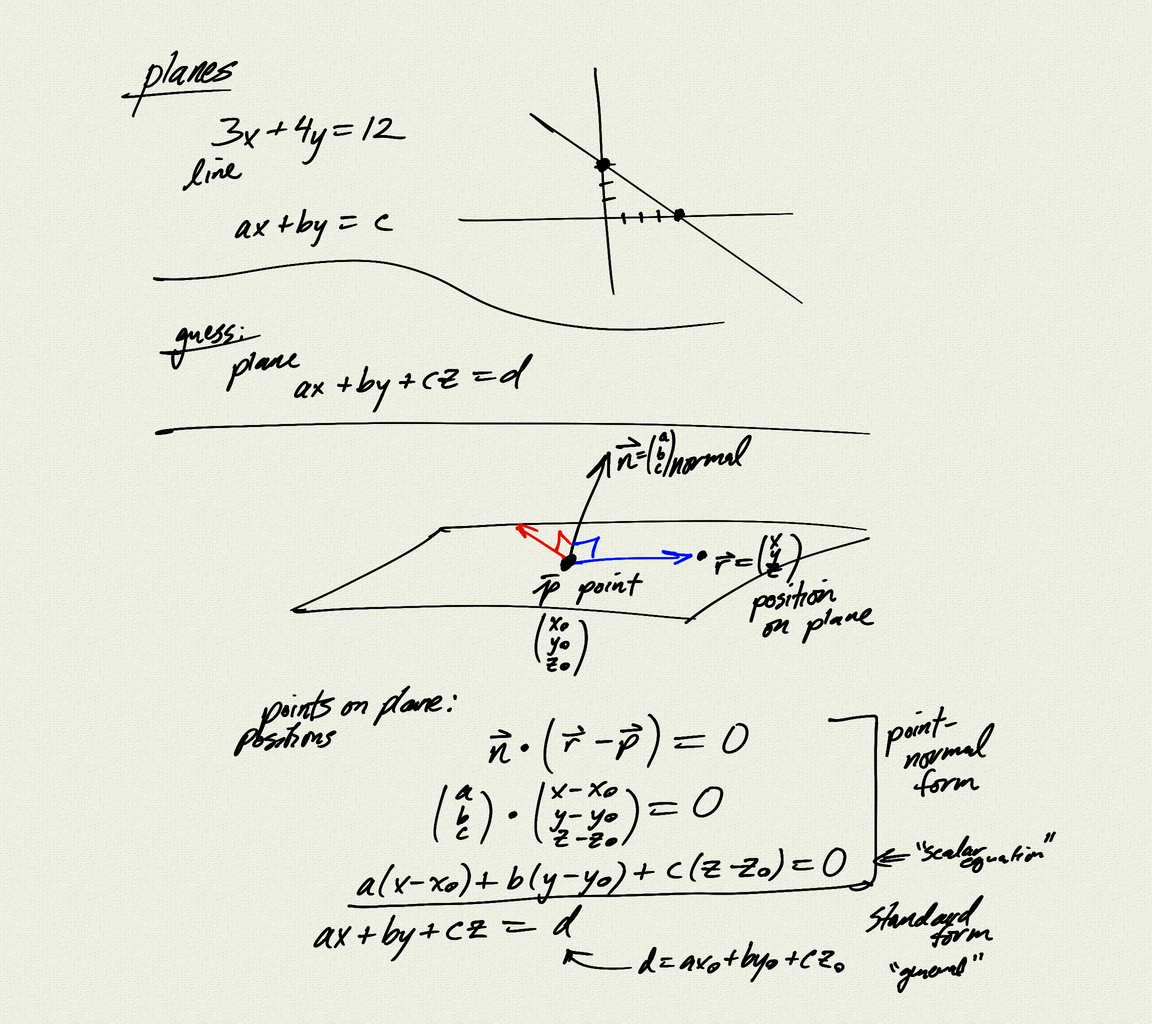 planes
3x + 4y = 12
line
ax + by = c
guess:
plane
ax + by + cz = d
n⃗ = (a b c) normal
r⃗ = (x y z)
p⃗ point
position
on plane
(x₀ y₀ z₀)
points on plane:
positions
n⃗ · (r⃗ − p⃗) = 0
(a b c) · (x−x₀ y−y₀ z−z₀) = 0
a(x−x₀) + b(y−y₀) + c(z−z₀) = 0
point-
normal
form
"scalar
equation"
ax + by + cz = d
d = ax₀ + by₀ + cz₀
standard
form
"general"